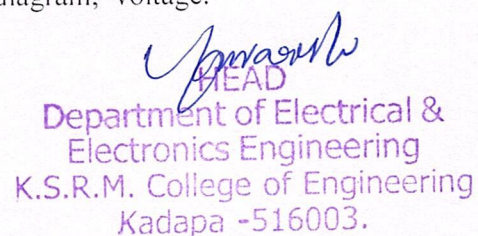 diagram, Voltage.
HEAD
Department of Electrical &
Electronics Engineering
K.S.R.M. College of Engineering
Kadapa -516003.